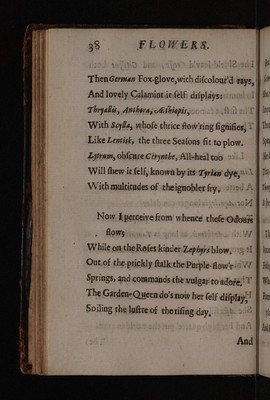 38 FLOWERS.
Then German Fox-glove, with discolour'd rays,
And lovely Calamint it self displays:
Thryallis, Anthora, Æthiopis,
With Scylla, whose thrice flow'ring signifies,
Like Lentisk, the three Seasons fit to plow.
Lytrum, obscure Cerynthe, All-heal too
Will shew it self, known by its Tyrian dye,
With multitudes of the ignobler fry.
Now I perceive from whence these Odours
flow;
While on the Roses kinder Zephyrs blow.
Out of the prickly stalk the Purple flow'r
Springs, and commands the vulgar to adore.
The Garden-Queen do's now her self display,
Soiling the lustre of the rising day.
And